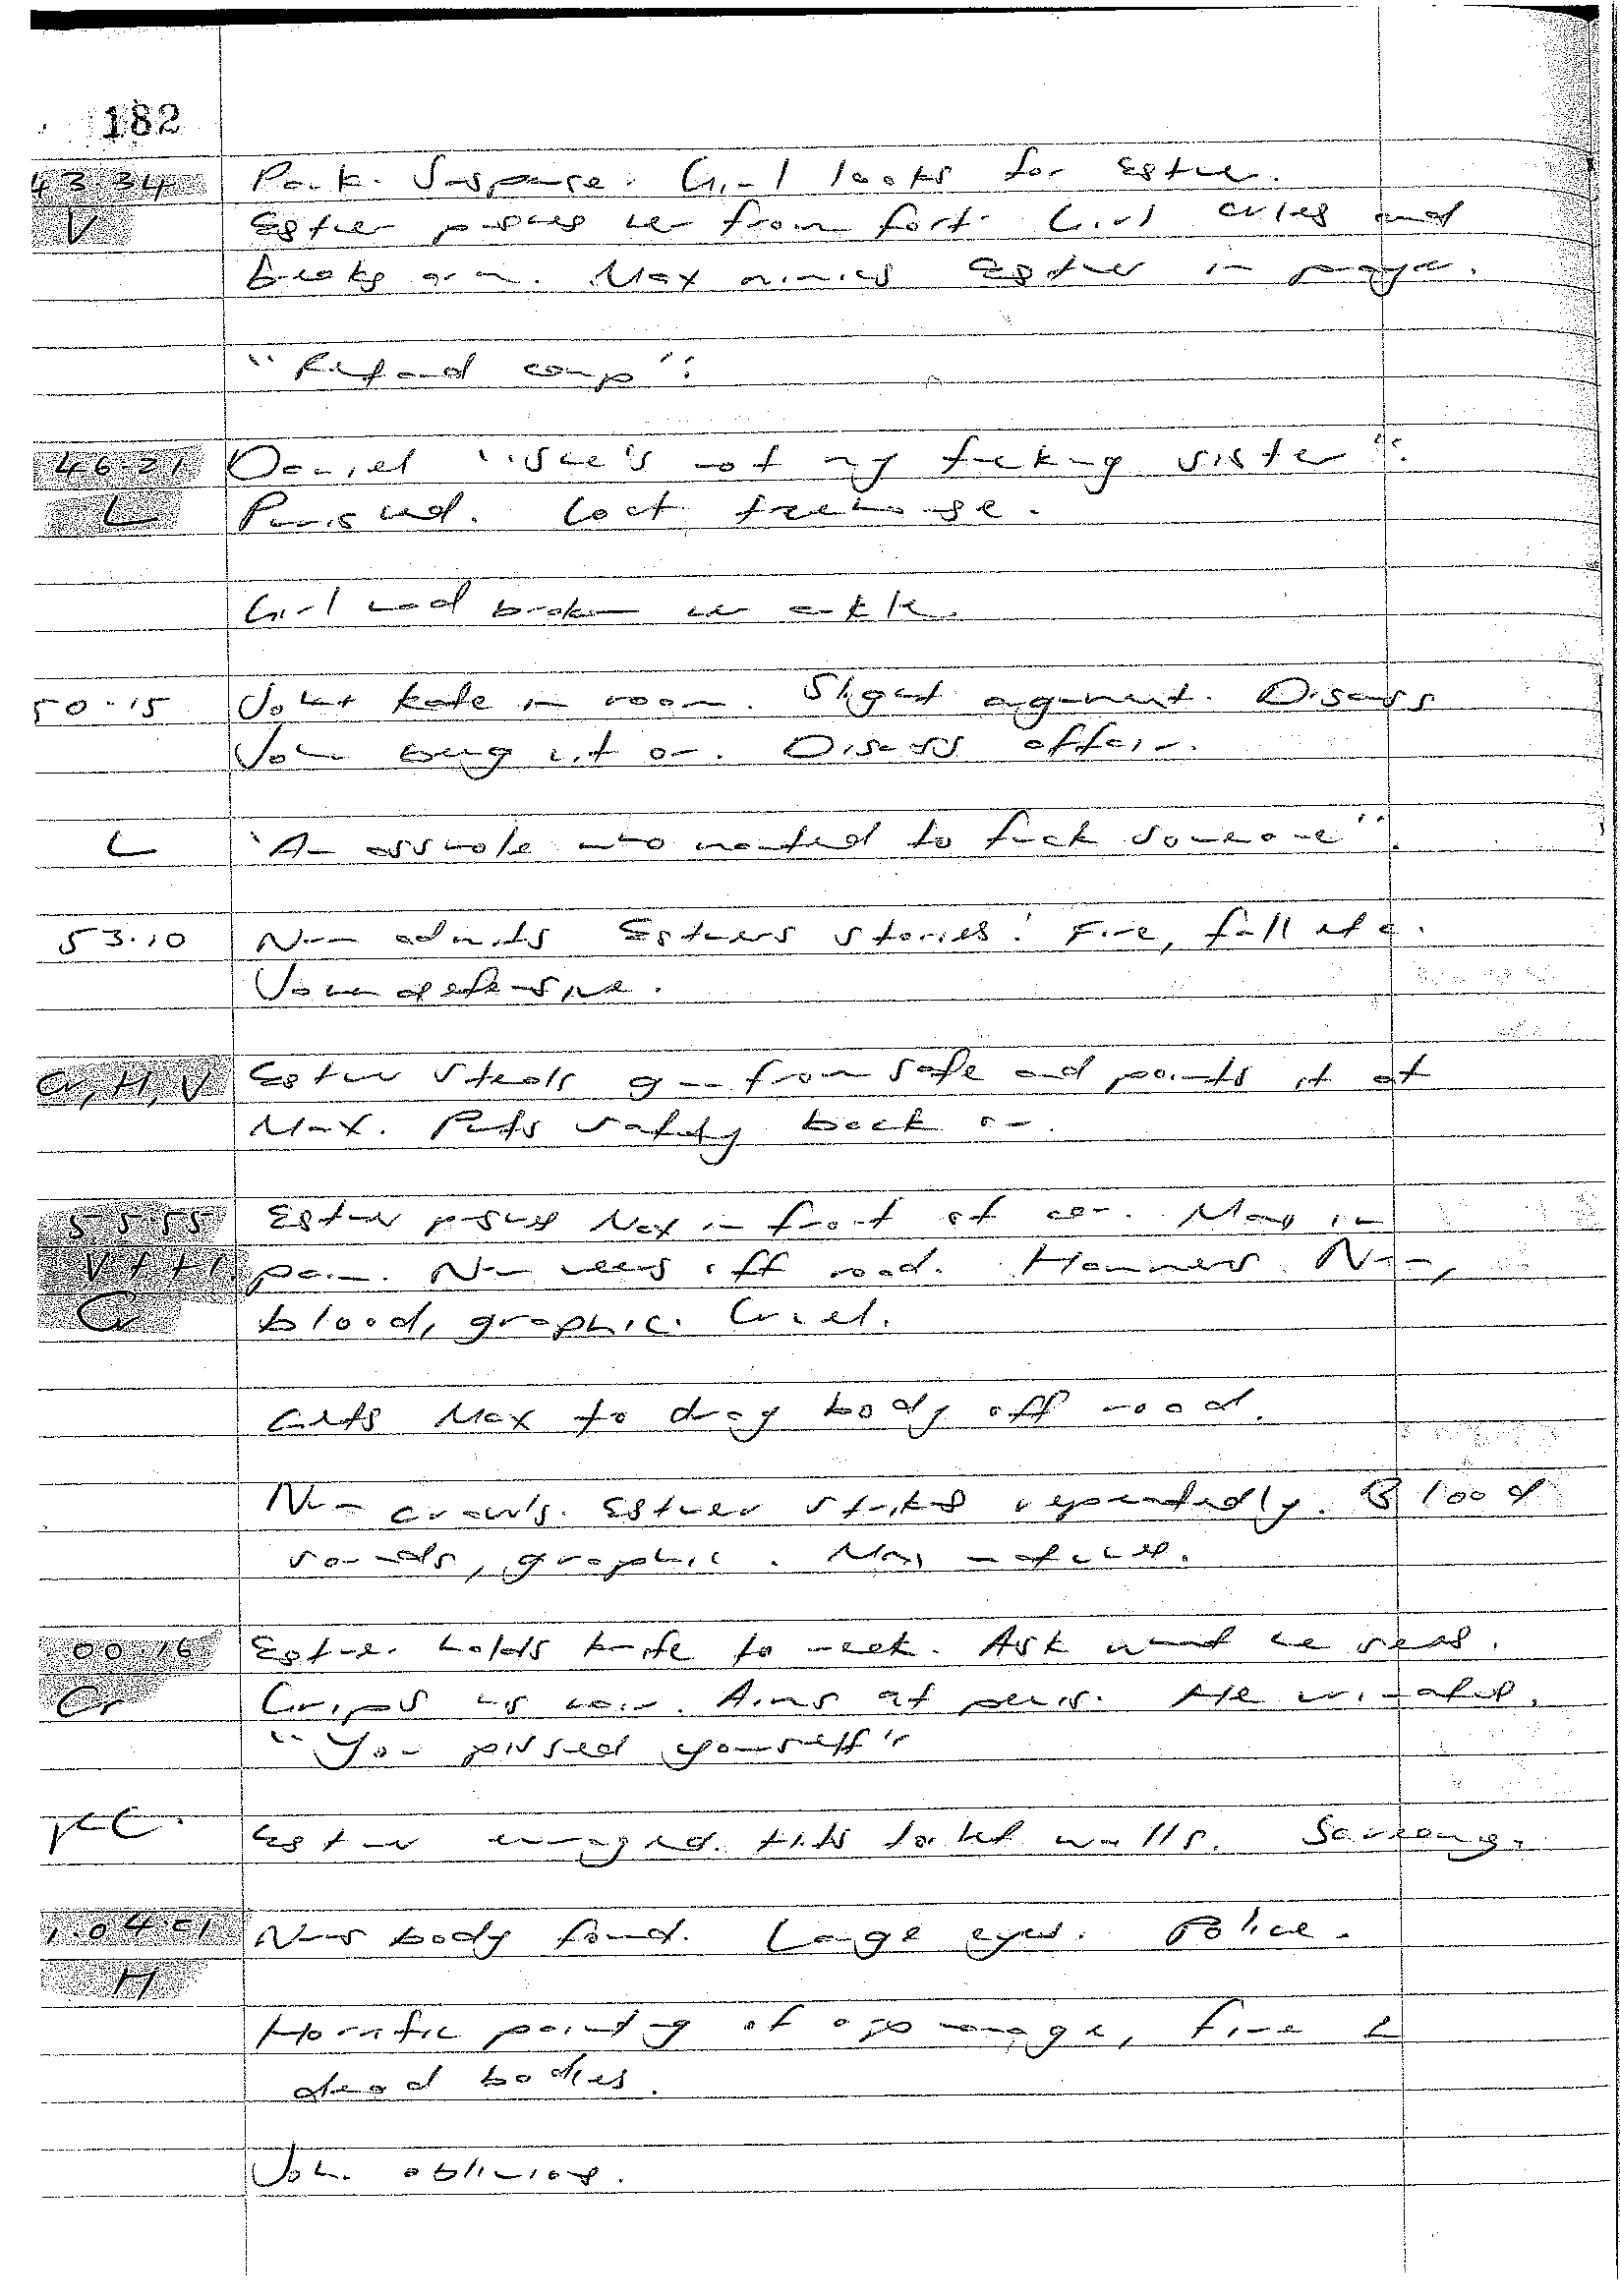 182
43.34 Park. Suspense. Girl looks for Esther.
V Esther pushes her from fort. Girl cries and
breaks arm. Max mimics Esther in prayer.
"Retard camp".
46.21 Daniel "She's not my fucking sister".
L Punished. Lost treehouse.
Girl had broken her ankle.
50.15 John + Kate in room. Slight argument. Discuss
John being hit on. Discuss affair.
L "An asshole who wanted to fuck someone".
53.10 Nun admits Esthers stories. Fire, fall etc.
John defensive.
Cr, H, V Esther steals gun from safe and points it at
Max. Puts safety back on.
55.55 Esther pushes Max in front of car. Max in
V + H pain. Nun veers off road. Hammers Nun,
Cr blood, graphic. Cruel.
Gets Max to drag body off road.
Nun crawls. Esther strikes repeatedly. Blood
sounds, graphic. Max watches.
00.16 Esther holds knife to neck. Ask what he sees.
Cr Grips his hair. Aims at penis. He urinates.
"You pissed yourself"
Esther enraged. Hits toilet walls. Screams.
1.04.01 Nuns body found. Large eyes. Police.
H
Horrific painting of orphanage, fire &
dead bodies.
John oblivious.